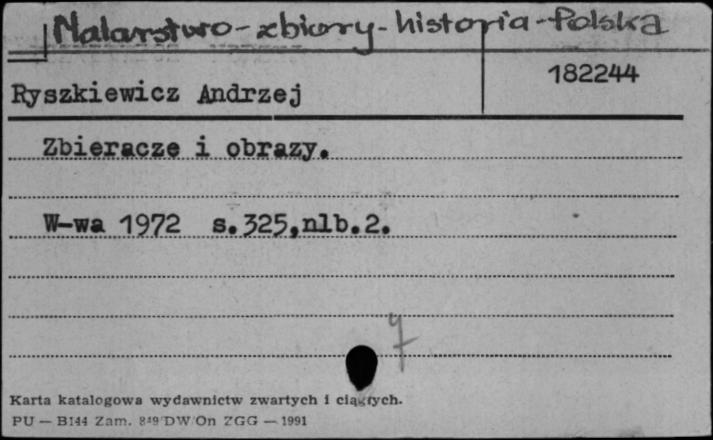 Malarstwo - zbiory - historia - Polska
182244
Ryszkiewicz Andrzej
Zbieracze i obrazy.
W-wa 1972 s.325,nlb.2.
Karta katalogowa wydawnictw zwartych i ciągłych.
PU — B144 Zam. 849/DW/On ZGG — 1991